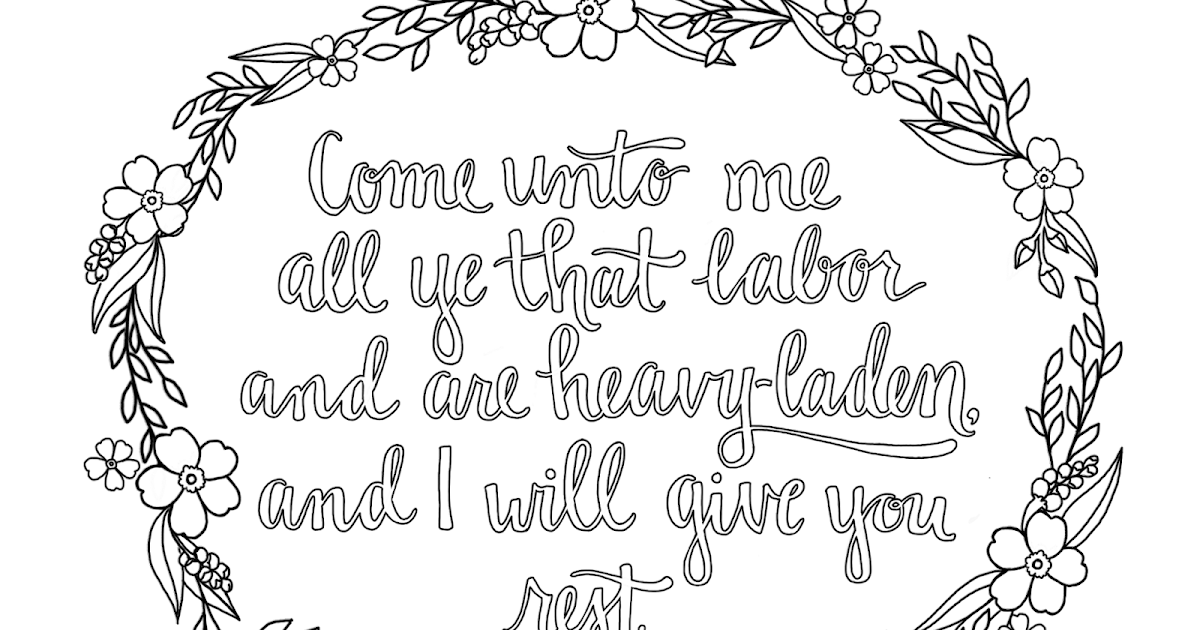 Come unto me
all ye that labor
and are heavy-laden,
and I will give you
rest.